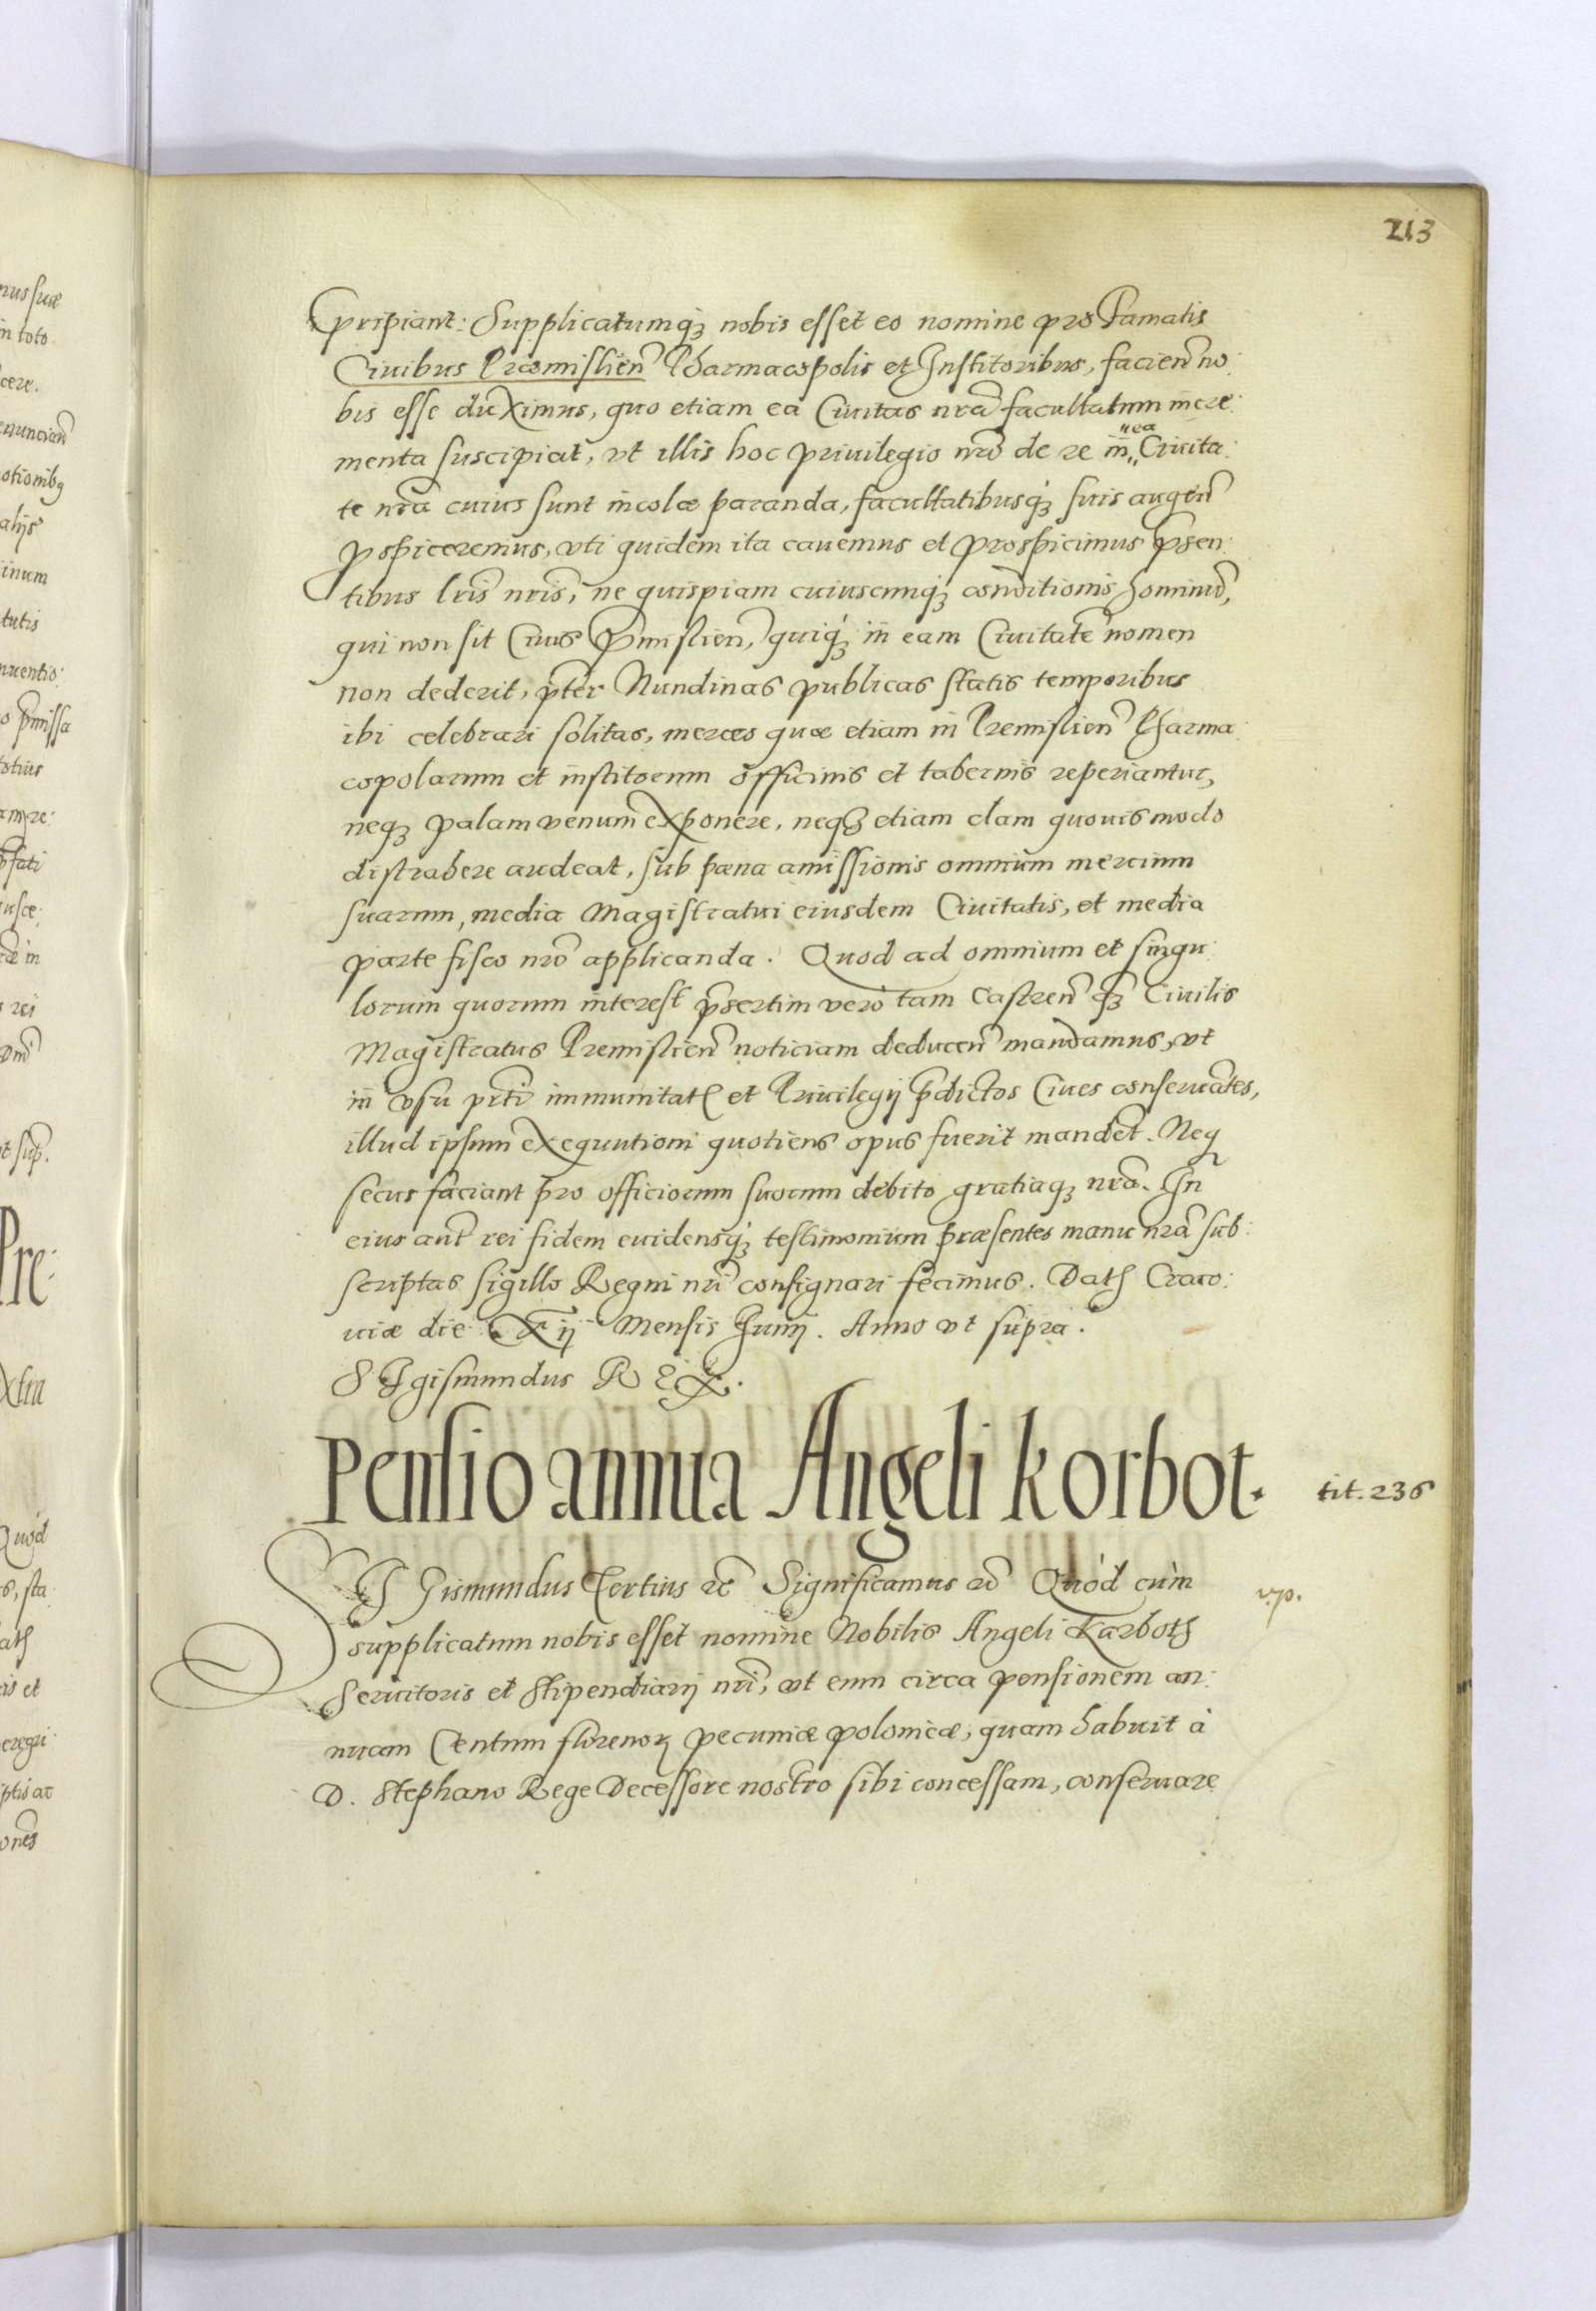 213
pripiant: Supplicatumq̃ nobis esset eo nomine pro Famatis
Civibus Præmislien̄ Pharmacopolis et Institoribus, facien̄ no:
bis esse duximus, quo etiam ea Civitas nr̄a facultatum incre:
menta suscipiat, vt illis hoc privilegio nr̄o de re in ea Civita:
te nr̄a cuius sunt incolæ paranda, facultatibusq̃ suis augen̄
p̱spiceremus, vti quidem ita cavemus et prospicimus p̄sen:
tibus lr̄is nr̄is, ne quispiam cuiuscunq̃ conditionis hominū,
qui non sit Civis P̄mislien̄, quiq̃ in eam Civitatē nomen
non dederit, p̄ter Nundinas publicas statis temporibus
ibi celebrari solitas, merces quæ etiam in Premislien̄ Pharma:
copolarum et institorum officinis et tabernis reperiantur,
neq̃ palam venum exponere, neq̃ etiam clam quovis modo
distrahere audeat, sub pœna amissionis omnium mercium
suarum, media Magistratui eiusdem Civitatis, et media
parte fisco nr̄o applicanda. Quod ad omnium et singu:
lorum quorum interest p̄sertim verò tam Castren̄ q̃ Civilis
Magistratus Premislien̄ noticiam deducen̄ mandamus, vt
in vsu pn̄ti immunitatꝭ et Privilegij p̄dictos Cives conservātes,
illud ipsum exequutioni quotiens opus fuerit mandēt. Neq̃
secus faciant pro officiorum suorum debito gratiaq̃ nr̄a. In
eius aūt rei fidem evidensq̃ testimonium præsentes manu nr̄a sub:
scriptas sigillo Regni nr̄i consignari fecimus. Datꝭ Craco:
viæ die Xij Mensis Junij. Anno vt supra.
SIgismundus REX.
Pensio annua Angeli Korbot.
tit. 236
SIGismundus Tertius &c̄ Significamus &c̄ Quòd cùm
supplicatum nobis esset nomine Nobilis Angeli Karbotꝭ
Servitoris et Stipendiarij nr̄i, vt eum circa pensionem an:
nuam Centum florenoꝝ pecuniæ polonicæ, quam habuit à
D. Stephano Rege Decessore nostro sibi concessam, conservare